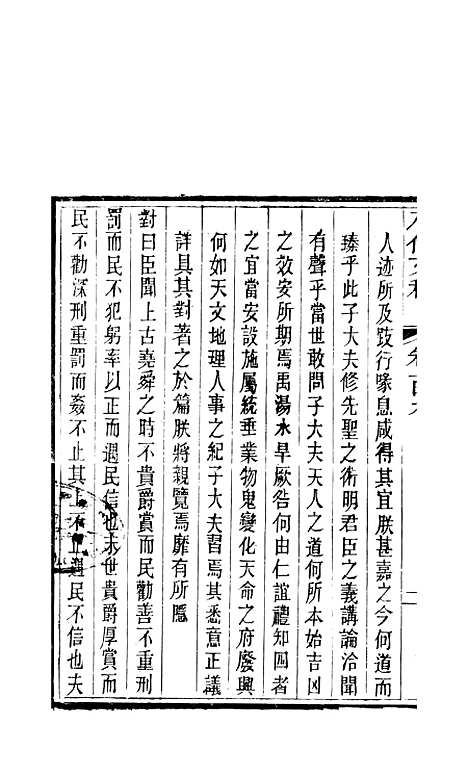 人迹所及跂行喙息咸得其宜朕甚嘉之今何道而
臻乎此子大夫修先聖之術明君臣之義講論洽聞
有聲乎當世敢問子大夫天人之道何所本始吉凶
之效安所期焉禹湯水旱厥咎何由仁誼禮知四者
之宜當安設施屬統垂業物鬼變化天命之府廢興
何如天文地理人事之紀子大夫習焉其悉意正議
詳具其對著之於篇朕將親覽焉靡有所隱
對曰臣聞上古堯舜之時不貴爵賞而民勸善不重刑
罰而民不犯躬率以正而遇民信也末世貴爵厚賞而
民不勸深刑重罰而姦不止其上不正遇民不信也夫